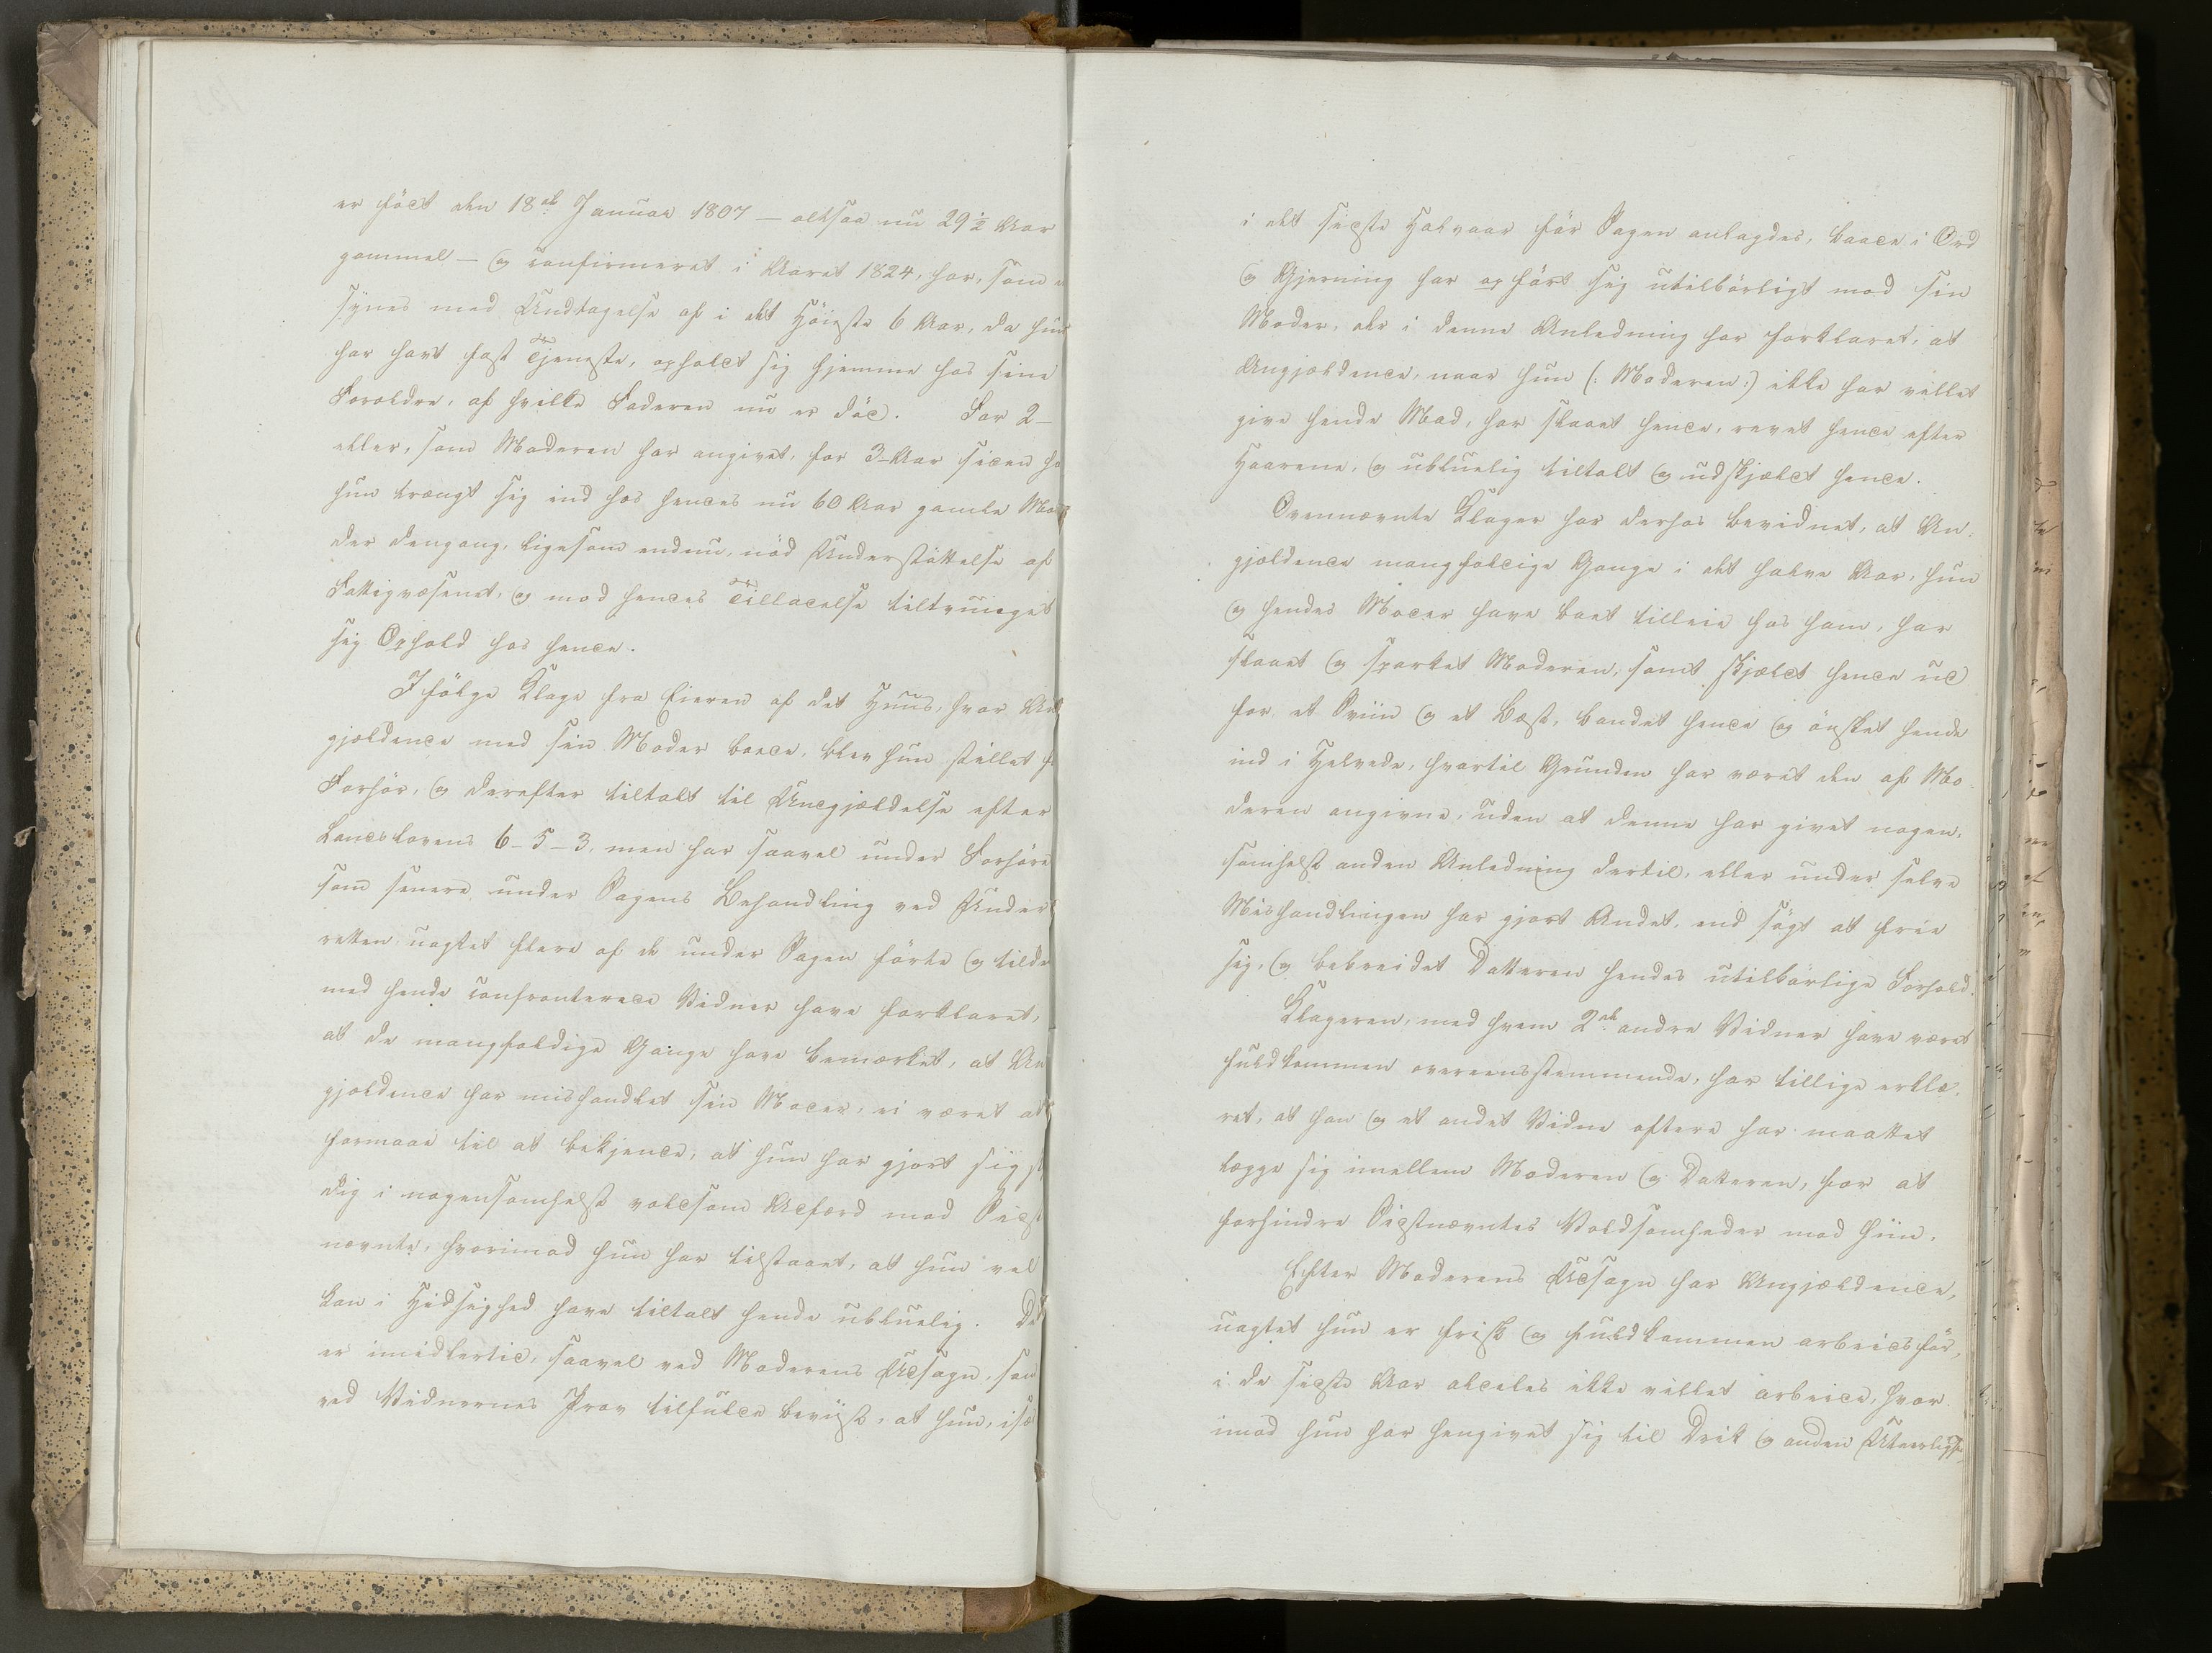 er född den 18de Januar 1807 — altsaa nu 29½ Aar
gammel — og confirmeret i Aaret 1824, har, som
synes med Undtagelse af i det Höieste 6 Aar, da hun
har havt fast Tjeneste, opholdt sig hjemme hos sine
Forældre, af hvilke Faderen nu er död. For 2-
eller, som Moderen har angivet, for 3-Aar siden
hun trængt sig ind hos hendes nu 60 Aar gamle
der dengang, ligesom endnu, nöd Understöttelse af
Fattigvæsenet, og mod hendes Tilladelse tiltvunget
sig Ophold hos hende.
Ifölge Klage fra Eieren af det Huus, hvor
gjældende med sin Moder boede, blev hun stillet
Forhör, og derefter tiltalt til Undgjældelse efter
Landslovens 6-5-3, men har saavel under Forhöre
som senere under Sagens Behandling ved Under
retten uagtet flere af de under Sagen förte og tilde
med hende confronterede Vidner have forklaret,
at de mangfoldige Gange have bemærket, at An
gjældende har mishandlet sin Moder, ei været at
formaae til at bekjende, at hun har gjort sig
dig i nogensomhelst voldsom Adfærd mod Sidst
nævnte, hvorimod hun har tilstaaet, at hun vel
kan i Hidsighed have tiltalt hende ubluelig. Det
er imidlertid, saavel ved Moderens Udsagn, som
ved Vidnernes Prov tilfulde beviist, at hun, isæ
i det sidste Halvaar för Sagen anlagdes, baade i Ord
og Gjerning har opfört sig utilbörligt mod sin
Moder, der i denne Anledning har forklaret, at
Angjældende, naar hun (: Moderen :) ikke har villet
give hende Mad, har slaaet hende, revet hende efter
Haarene, og ubluelig tiltalt og udskjældt hende.
Ovennævnte Klager har derhos bevidnet, at An-
gjældende mangfoldige Gange i det halve Aar, hun
og hendes Moder have boet tilleie hos ham, har
slaaet og sparket Moderen, samt skjældt hende ud
for et Sviin og et Bæst, bandet hende og önsket hende
ind i Helvede, hvortil Grunden har været den af Mo-
deren angivne, uden at denne har givet nogen-
somhelst anden Anledning dertil, eller under selve
Mishandlingen har gjort Andet, end sögt at frie
sig, og bebreidet Datteren hendes utilbörlige Forhold.
Klageren, med hvem 2de andre Vidner have været
fuldkommen overeensstemmende, har tillige erklæ-
ret, at han og et andet Vidne oftere har maattet
lægge sig imellem Moderen og Datteren, for at
forhindre Sidstnævntes Voldsomheder mod hiin.
Efter Moderens Udsagn har Angjældende,
uagtet hun er frisk og fuldkommen arbeidsför,
i de sidste Aar aldeles ikke villet arbeide, hvor-
imod hun har hengivet sig til Drik og anden Uteerligh